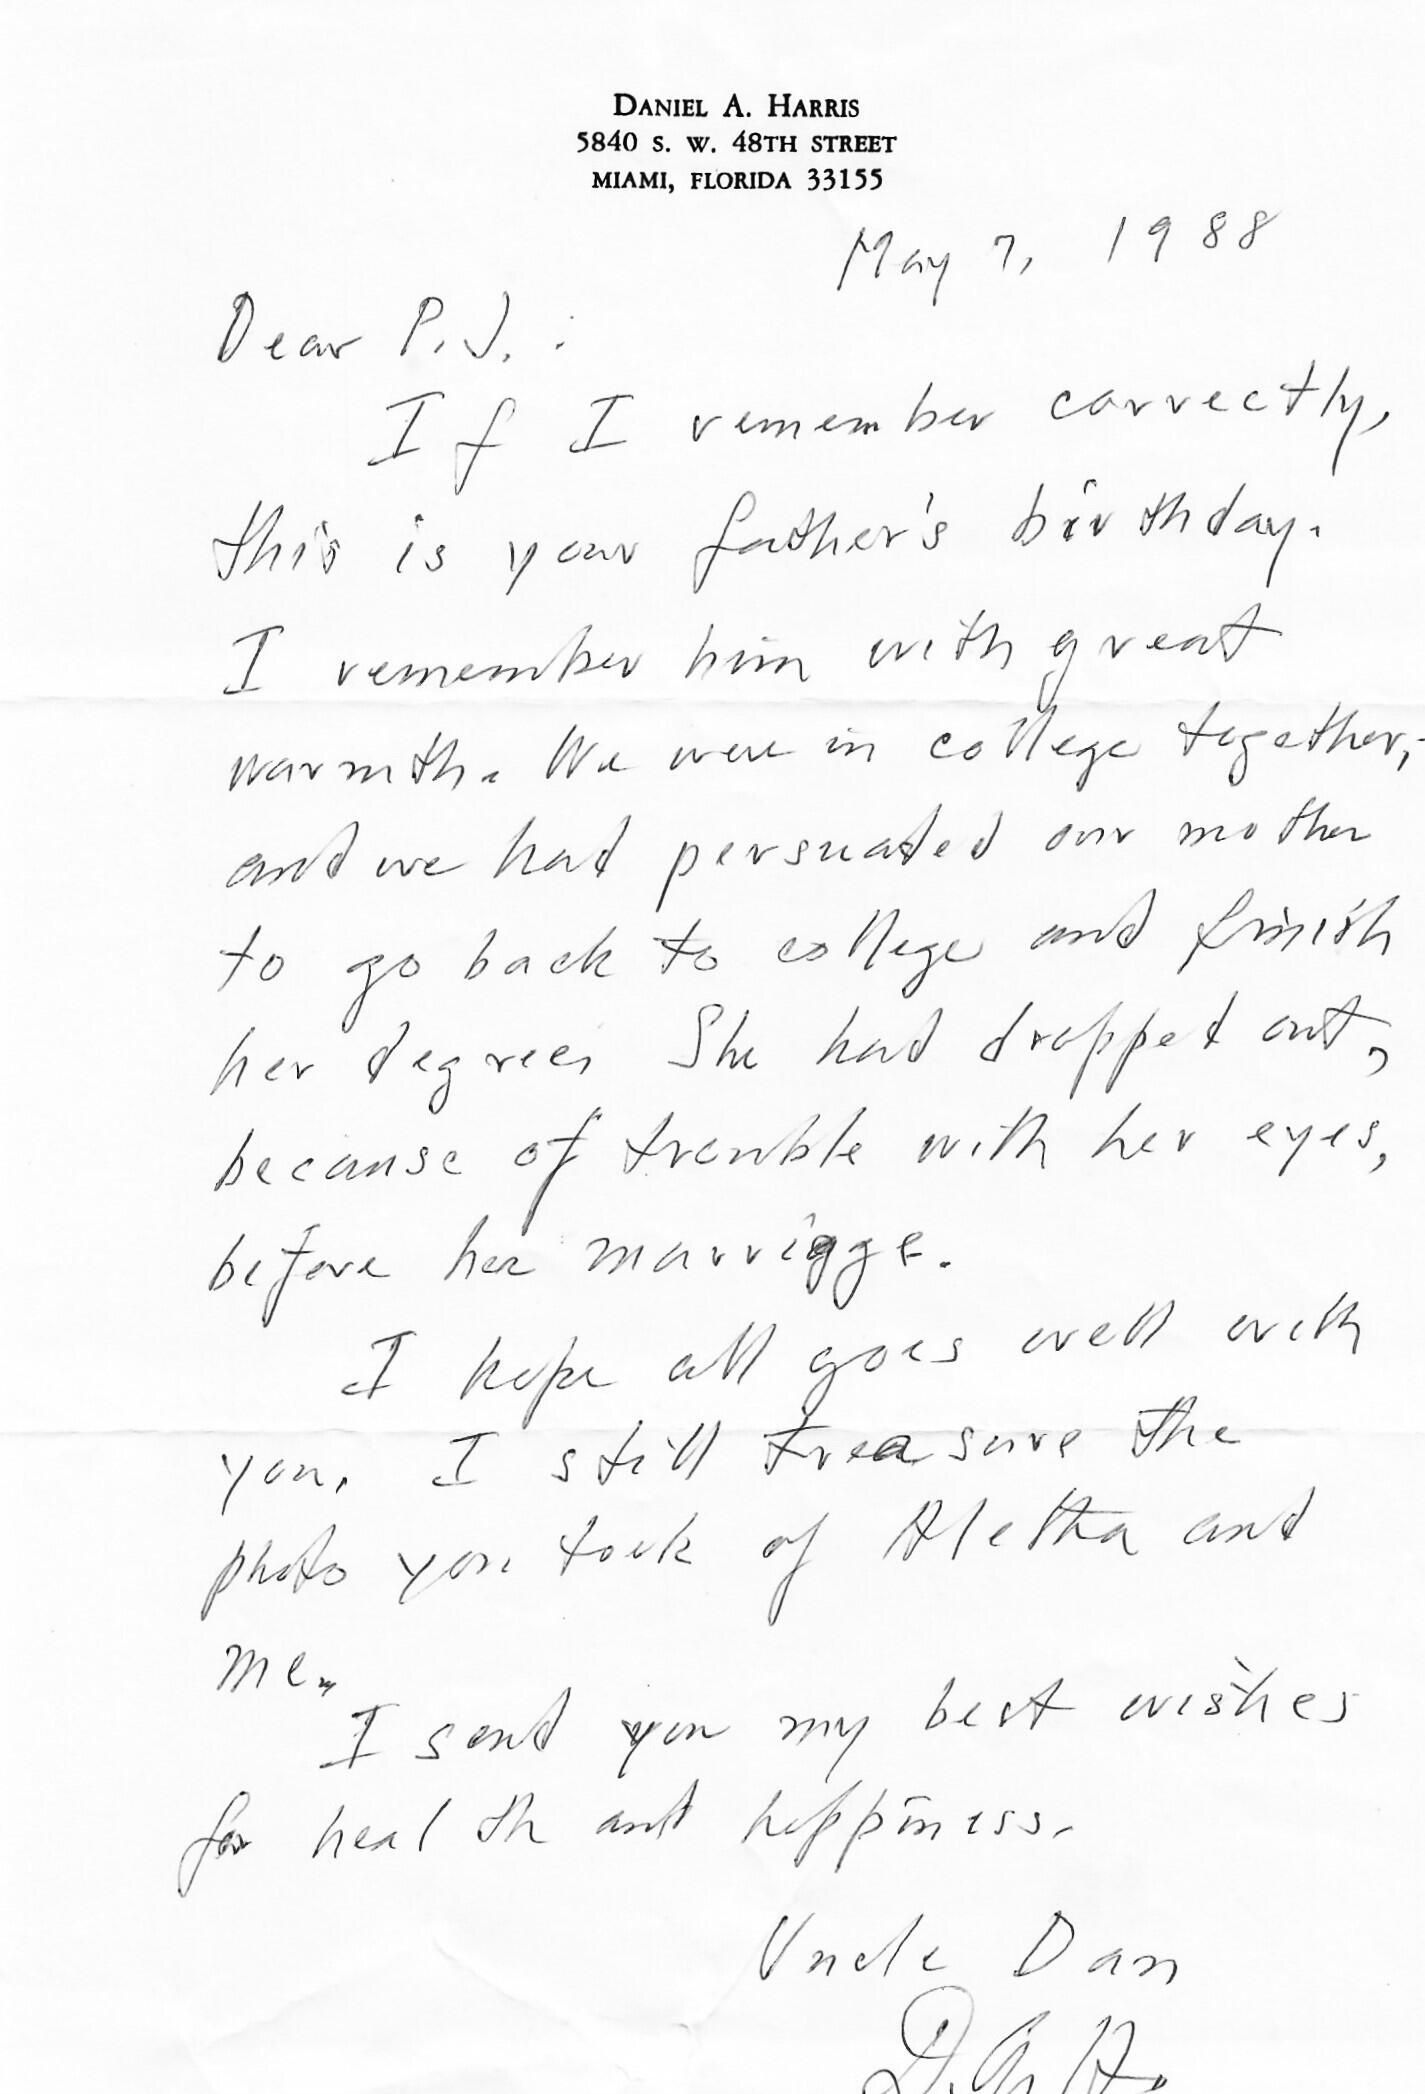 DANIEL A. HARRIS
5840 S. W. 48TH STREET
MIAMI, FLORIDA 33155
May 7, 1988
Dear P.J. :
If I remember correctly,
this is your father's birthday.
I remember him with great
warmth. We were in college together,
and we had persuaded our mother
to go back to college and finish
her degree. She had dropped out,
because of trouble with her eyes,
before her marriage.
I hope all goes well with
you. I still treasure the
photo you took of Aletha and
me.
I send you my best wishes
for health and happiness.
Uncle Dan
D.A.H.